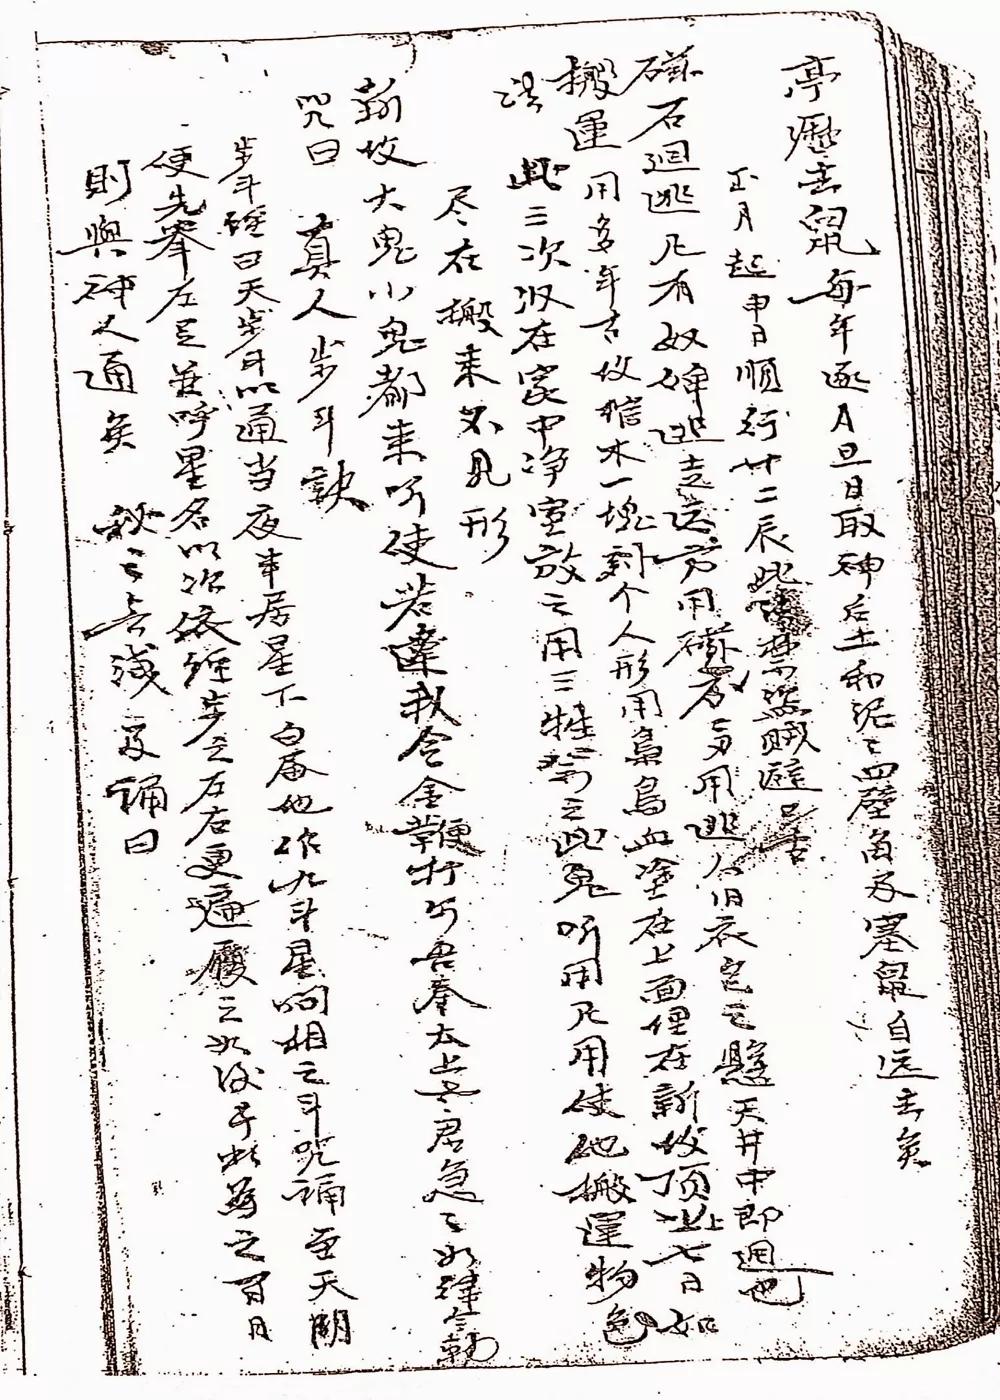 亭壢去鼠 每年逐月旦日取神后土和泥之四壁角永塞鼠自远去矣
正月起申日順行廿二辰此禁盗賊避
磁石迴逃 凡有奴婢逃走这方用磁石方用逃人旧衣包之懸天井中即迴也
搬運 用多年古坟棺木一塊刻个人形用梟鳥血塗在上面俚在新坟顶上七日如
此三次収在家中净室放之用三牲祭之此鬼听用凡用使他搬運物色
法
尽在搬来不見形
新坟大鬼小鬼都来听使若違我令金鞭打 吾奉太上老君急之如律令勅
咒曰
真人步斗訣
步斗經曰天步斗以通当夜半居星下 作九斗星 相之斗咒誦至天開
便先奉左足並呼星名以次依經步之左右更遍履之如後于此為之百日
則與神人通矣 秘之 誦曰